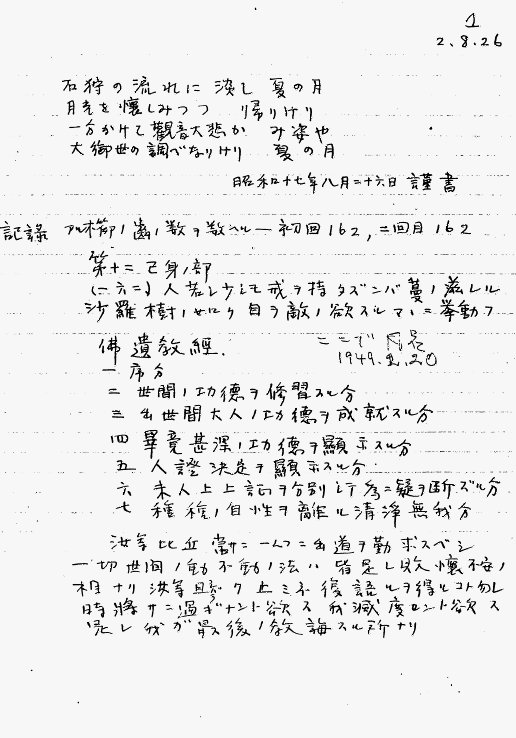 1
2.8.26
石狩の流れに淡し 夏の月
月光を懐しみつつ 帰りけり
一分かけて觀音大悲か み姿や
大御世の調べなりけり 夏の月
昭和十七年八月二十六日 謹書
記録 アル木櫛ノ歯ノ数ヲ数ヘル― 初回162, 二回目162
第十二 己身ノ部
(一六二) 人若シ少シモ戒ヲ持タズンバ蔓ノ滋レル
沙羅樹ノ如ク自ヲ敵ノ欲スルママニ挙動フ
佛遺教經.
ここで
1949.2.20
一 序分
二 世間ノ功德ヲ修習スル分
三 出世間大人ノ功德ヲ成就スル分
四 畢竟甚深ノ功德ヲ顯示スル分
五 人證決定ヲ顯示スル分
六 未入上上証ヲ分別シ行為ニ疑ヲ断ズル分
七 種種ノ自性ヲ離ル清淨無我分
汝等比丘 常ニ一心ニ出道ヲ勤求スベシ
一切世間ノ動不動ノ法ハ 皆是レ敗懷不安ノ
相ナリ 汝等且ク止ミネ 復語ルヲ得ルコト勿レ
時將サニ過ギナント欲ス 我滅度セント欲ス
是レ我ガ最後ノ教誨スル所ナリ